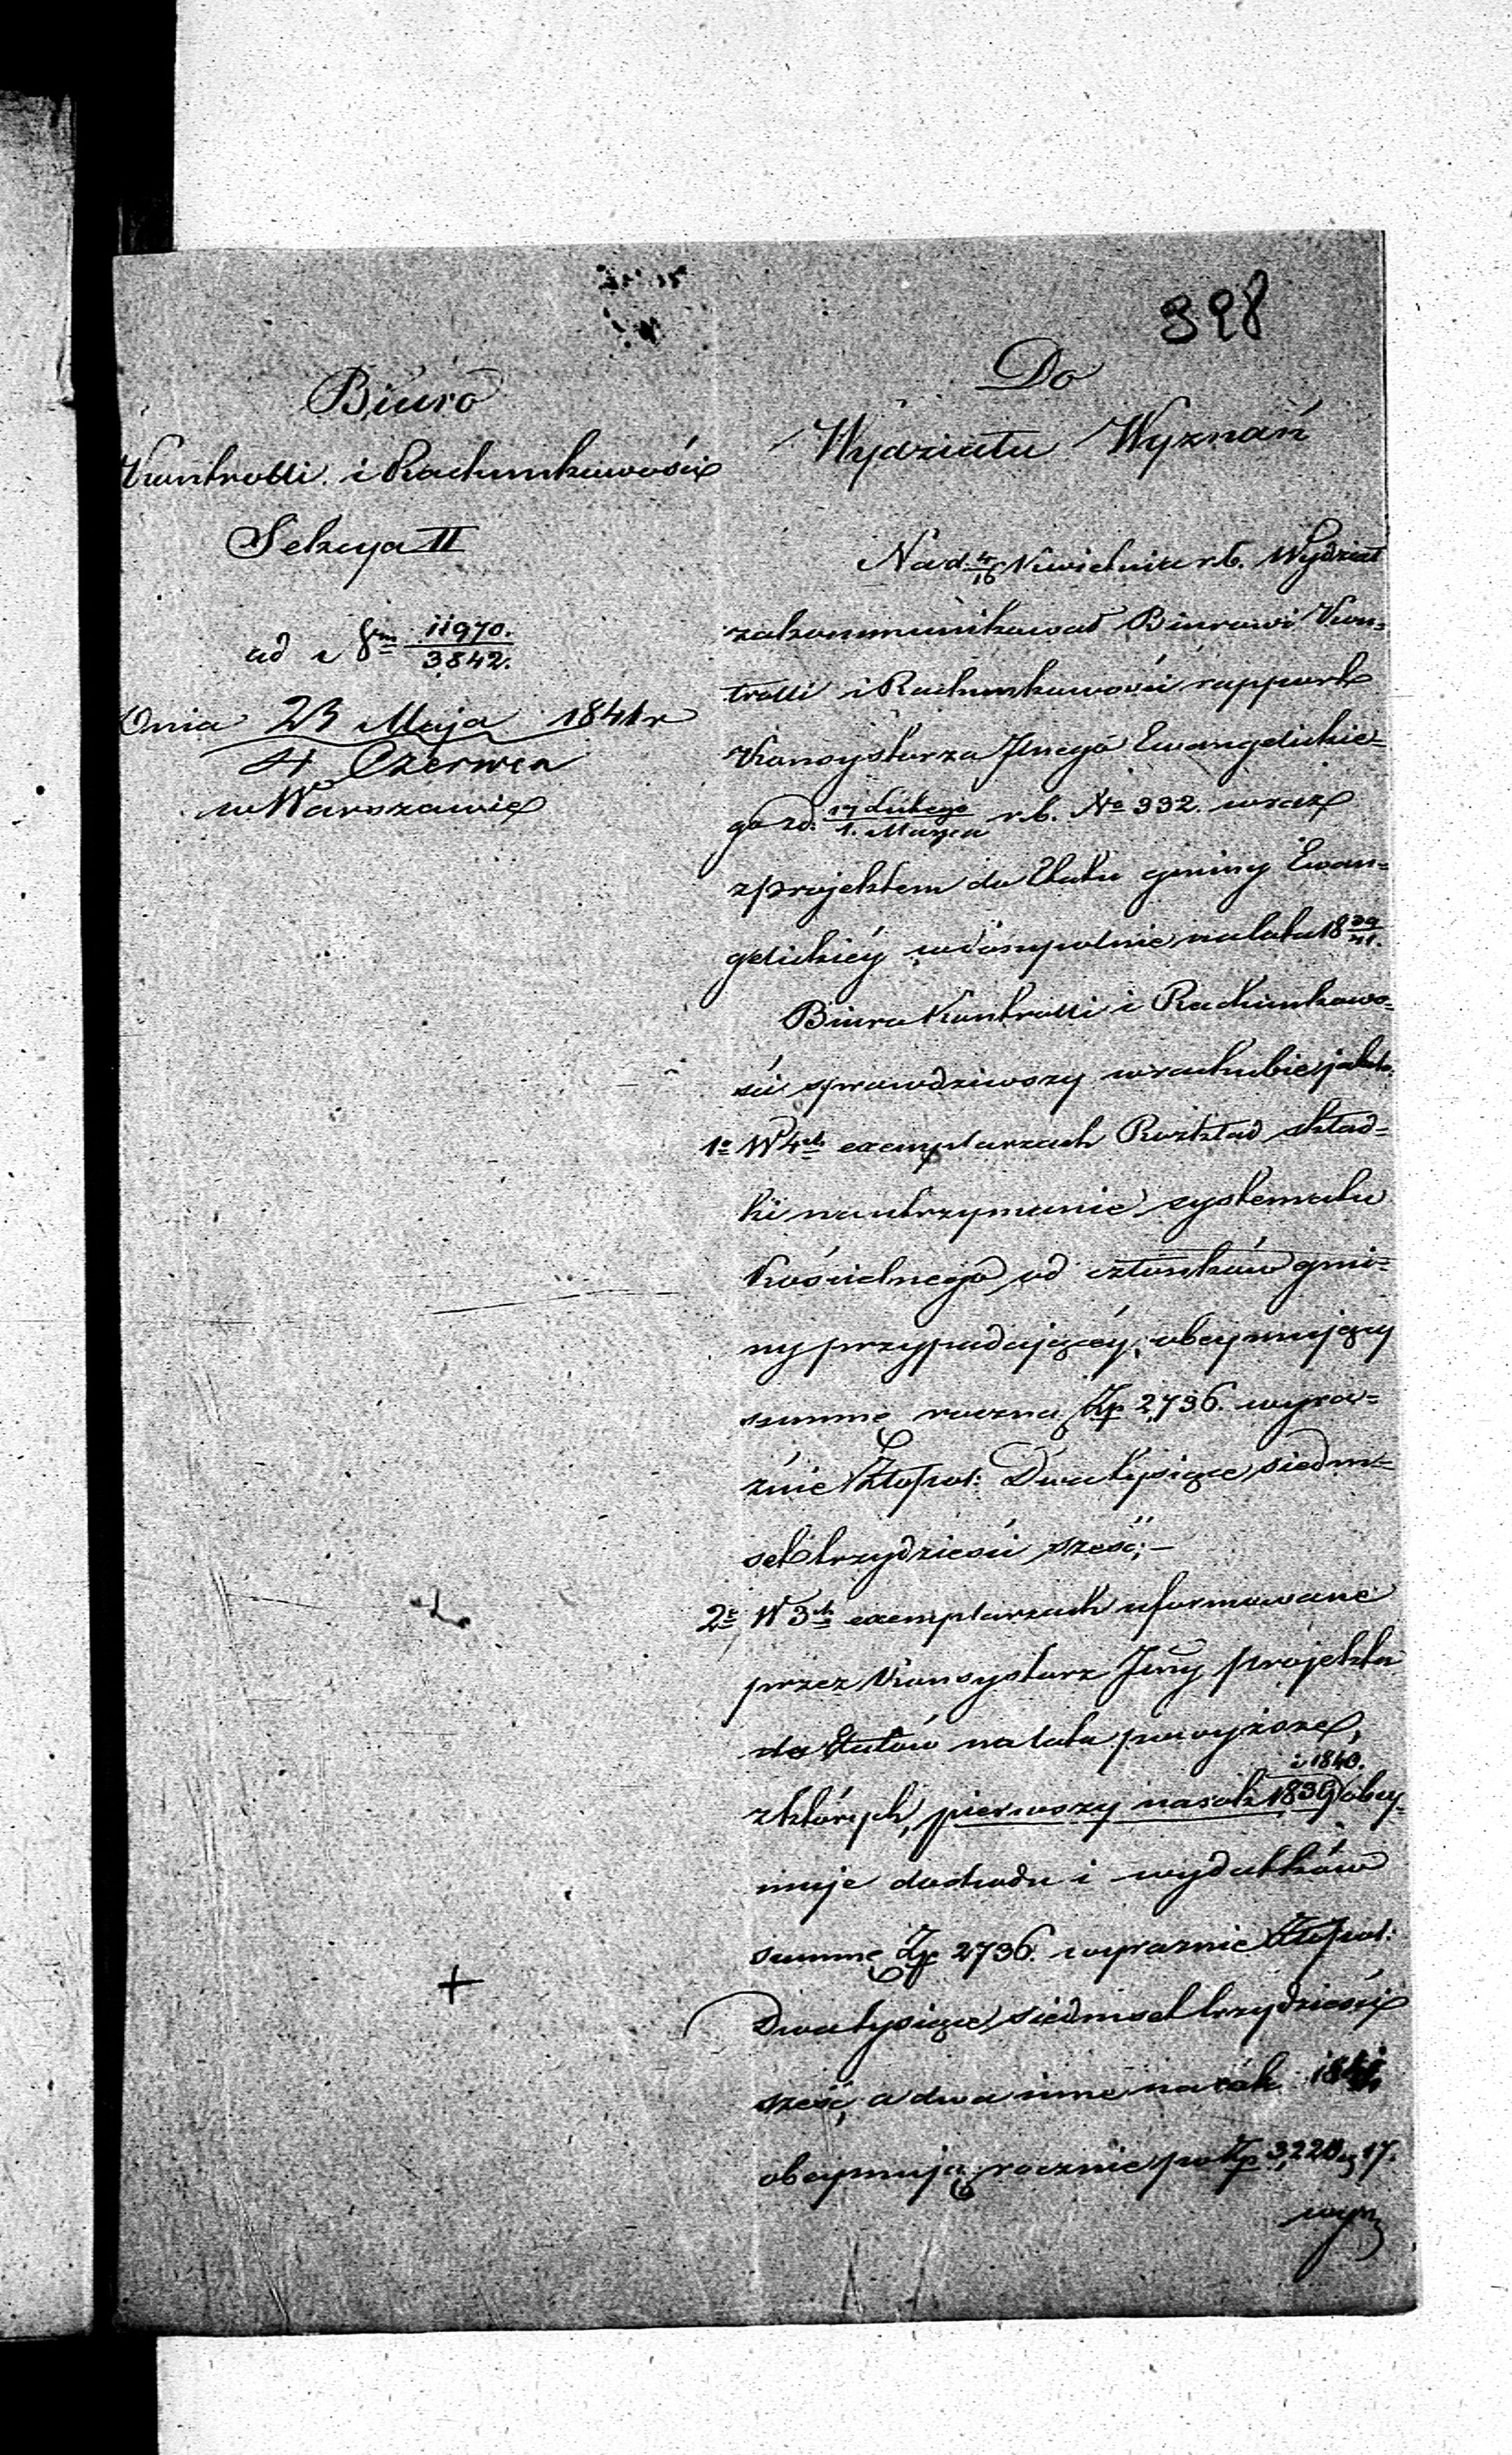 398
Biuro
Kontrolli i Rachunkowości
Sekcya II
ad 11970.
3842.
Dnia 23 Maja 1841 r
4 Czerwca
w Warszawie
Do
Wydziału Wyznań
Na d. 4/16 Kwietnia r. b. Wydział
zakommunikował Biurowi Kon=
trolli i Rachunkowości rapport
Konsystorza Jnego Ewangelickie=
go z d. 17 Lutego/1. Marca r. b. No 332. wraz
z projektem do Etatu gminy Ewan=
gelickiéy w na lata 18 39/41.
Biuro Kontrolli i Rachunkowo=
ści sprawdziwszy w rachubie jako to.
1o W 4ch exemplarzach Rozkład skład=
ki na utrzymanie systematu
Kościelnego od członków gmi=
ny przypadającéy, obeymujący
summę roczną Zp 2,736. wyra=
źnie Złotpol: Dwa tysiące siedm=
set trzydzieści sześć;—
2e W 3ch exemplarzach uformowane
przez Konsystorz Jlny projekta
do Etatów na lata powyższe,
i 1840.
z których, pierwszy na rok 1839 obey=
muje dochodu i wydatków
summę Zp 2736. wyraznie Złotpol:
Dwa tysiące siedmset trzydzieści
sześć, a dwa inne na rok 1841
obeymują rocznie po Zp 3,220 g 17.
wyr